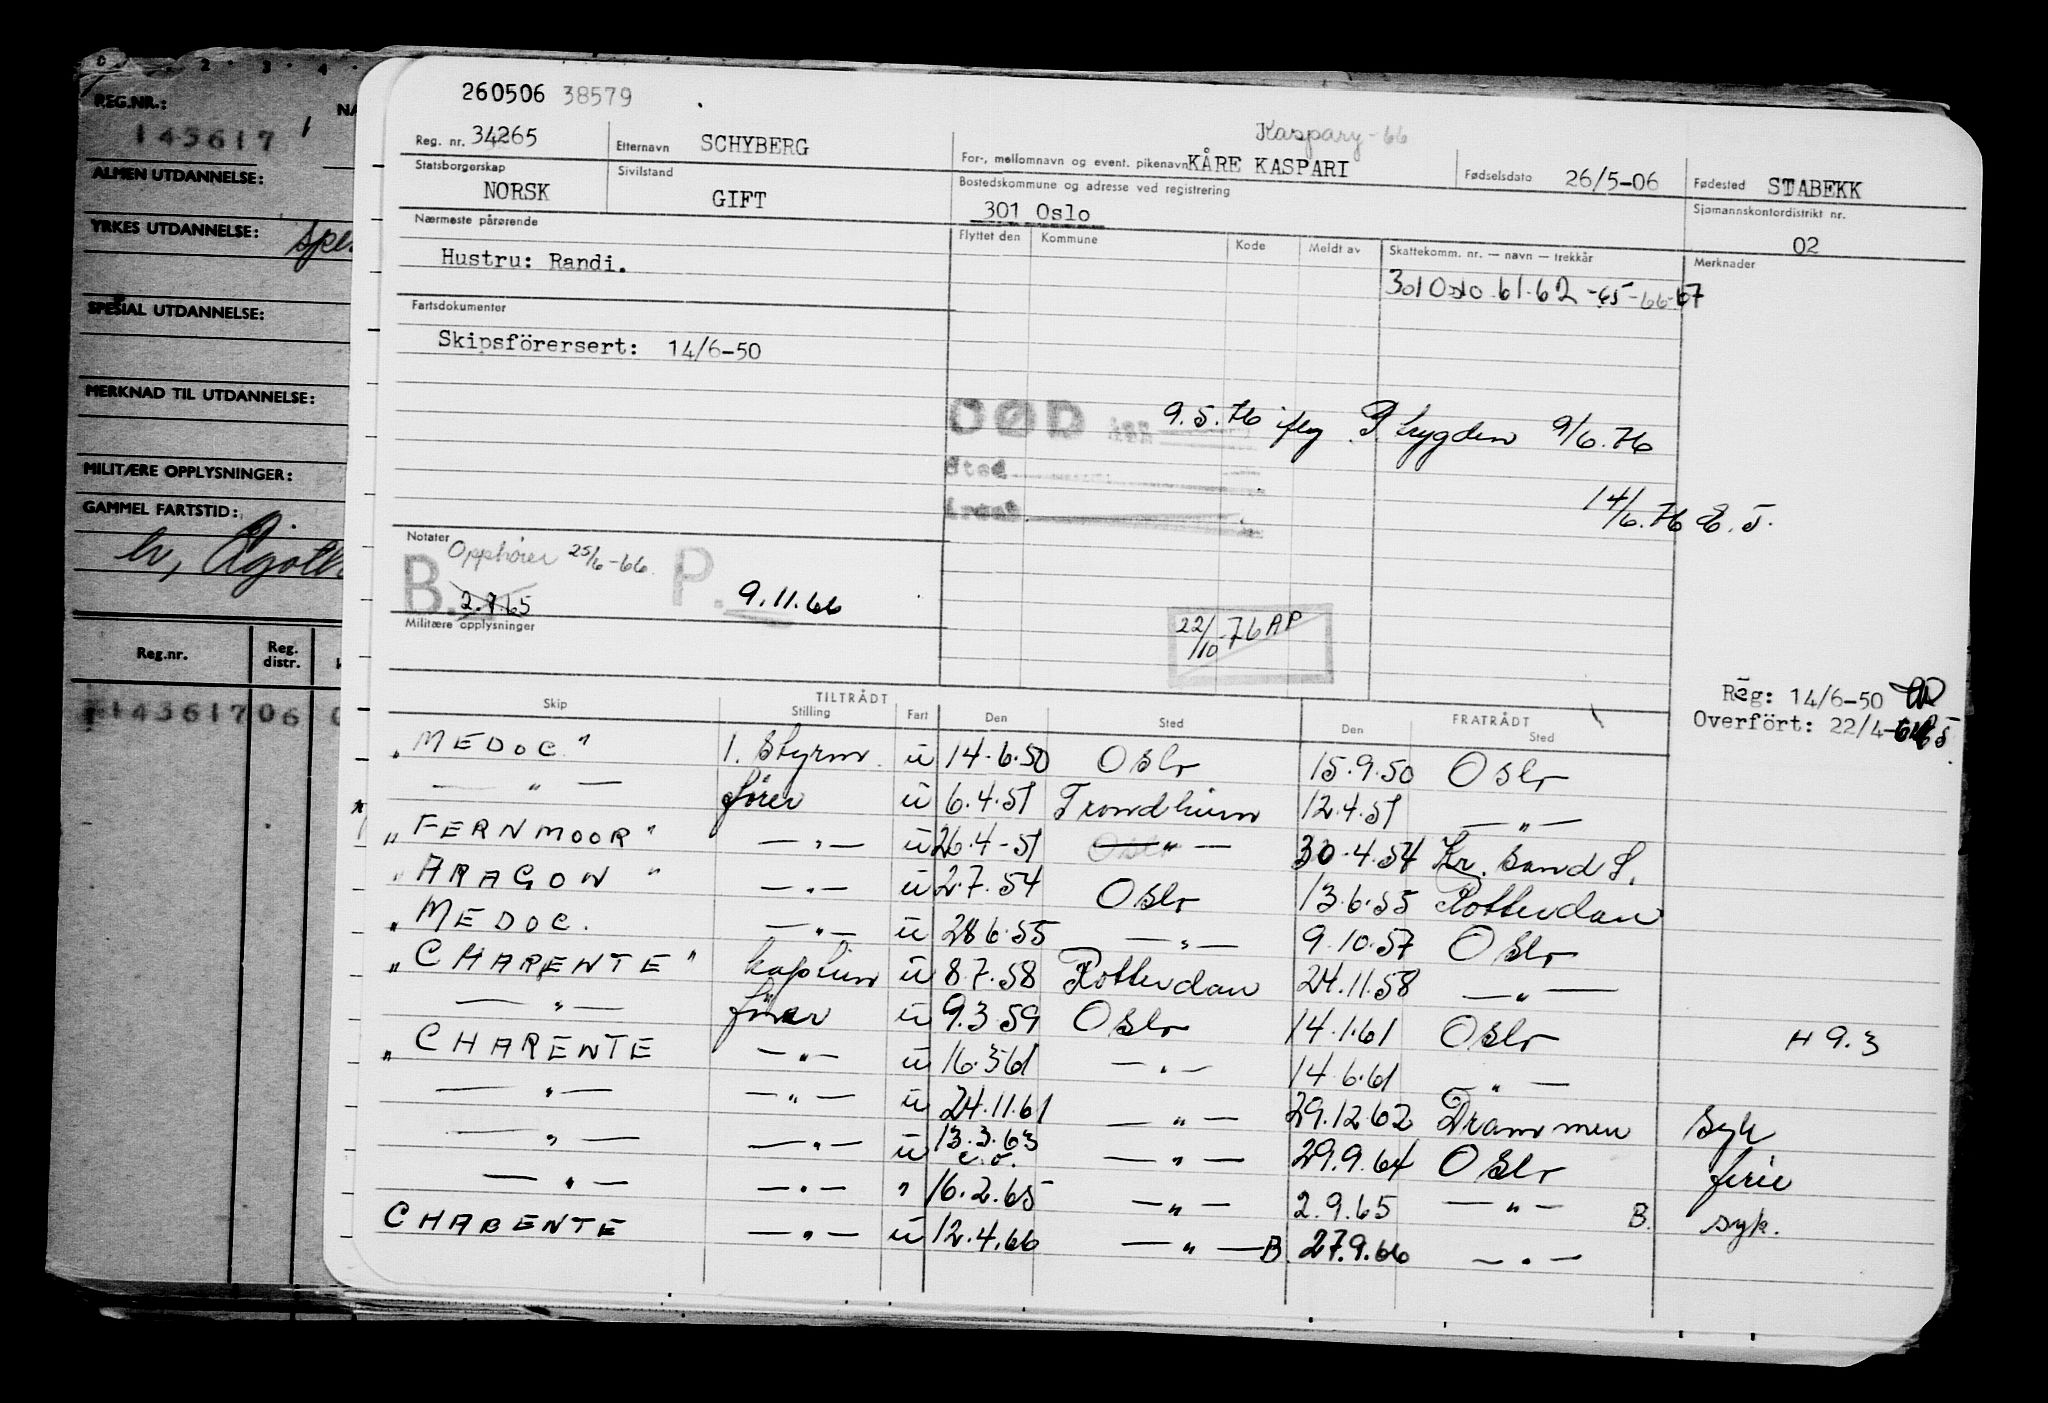 260506 38579
Reg. nr. 34265 Etternavn SCHYBERG For-, mellomnavn og event. pikenavn KÅRE KASPARI Kaspary-66 Fødselsdato 26/5-06 Fødested STABEKK
Statsborgerskap NORSK Sivilstand GIFT Bostedskommune og adresse ved registrering 301 Oslo Sjømannskontordistrikt nr. 02
Nærmeste pårørende Flyttet den Kommune Kode Meldt av Skattekomm. nr. — navn — trekkår Merknader
Hustru: Randi. 301 Oslo 61-62-65-66-67
Fartsdokumenter
Skipsförersert: 14/6-50
DØD den 9.5.76 iflg R.trygden 9/6.76
Sted
Årsak 14/6.76 E.J.
Notater
B. Opphører 25/6-66. P. 9.11.66
2.9.65
Militære opplysninger
22/10-76 AP
Reg: 14/6-50
Overfört: 22/4-
TILTRÅDT FRATRÅDT
Skip Stilling Fart Den Sted Den Sted
„MEDOC" 1. styrm. u 14.6.50 Oslo 15.9.50 Oslo
— " — fører u 6.4.51 Trondheim 12.4.51 — " —
„FERNMOOR" — " — u 26.4-51 — " — 30.4.54 Kr. sand S.
„ARAGON" — " — u 2.7.54 Oslo 13.6.55 Rotterdam
„MEDOC. — " — u 28.6.55 — " — 9.10.57 Oslo
„CHARENTE" kaptein u 8.7.58 Rotterdam 24.11.58 — " —
— " — fører u 9.3.59 Oslo 14.1.61 Oslo H 9.3
„CHARENTE — " — u 16.3.61 — " — 14.6.61 — " —
— " — — " — u 24.11.61 — " — 29.12.62 Drammen syk
— " — — " — u 13.3.63 — " — 29.9.64 Oslo ferie
— " — — " — " 16.2.65 — " — 2.9.65 — " — B. syk.
CHARENTE — " — u 12.4.66 — " — B. 27.9.66 — " —
REG.NR.:
143617
ALMEN UTDANNELSE:
YRKES UTDANNELSE:
SPESIAL UTDANNELSE:
MERKNAD TIL UTDANNELSE:
MILITÆRE OPPLYSNINGER:
GAMMEL FARTSTID:
Reg.nr. Reg. distr.
143617 06